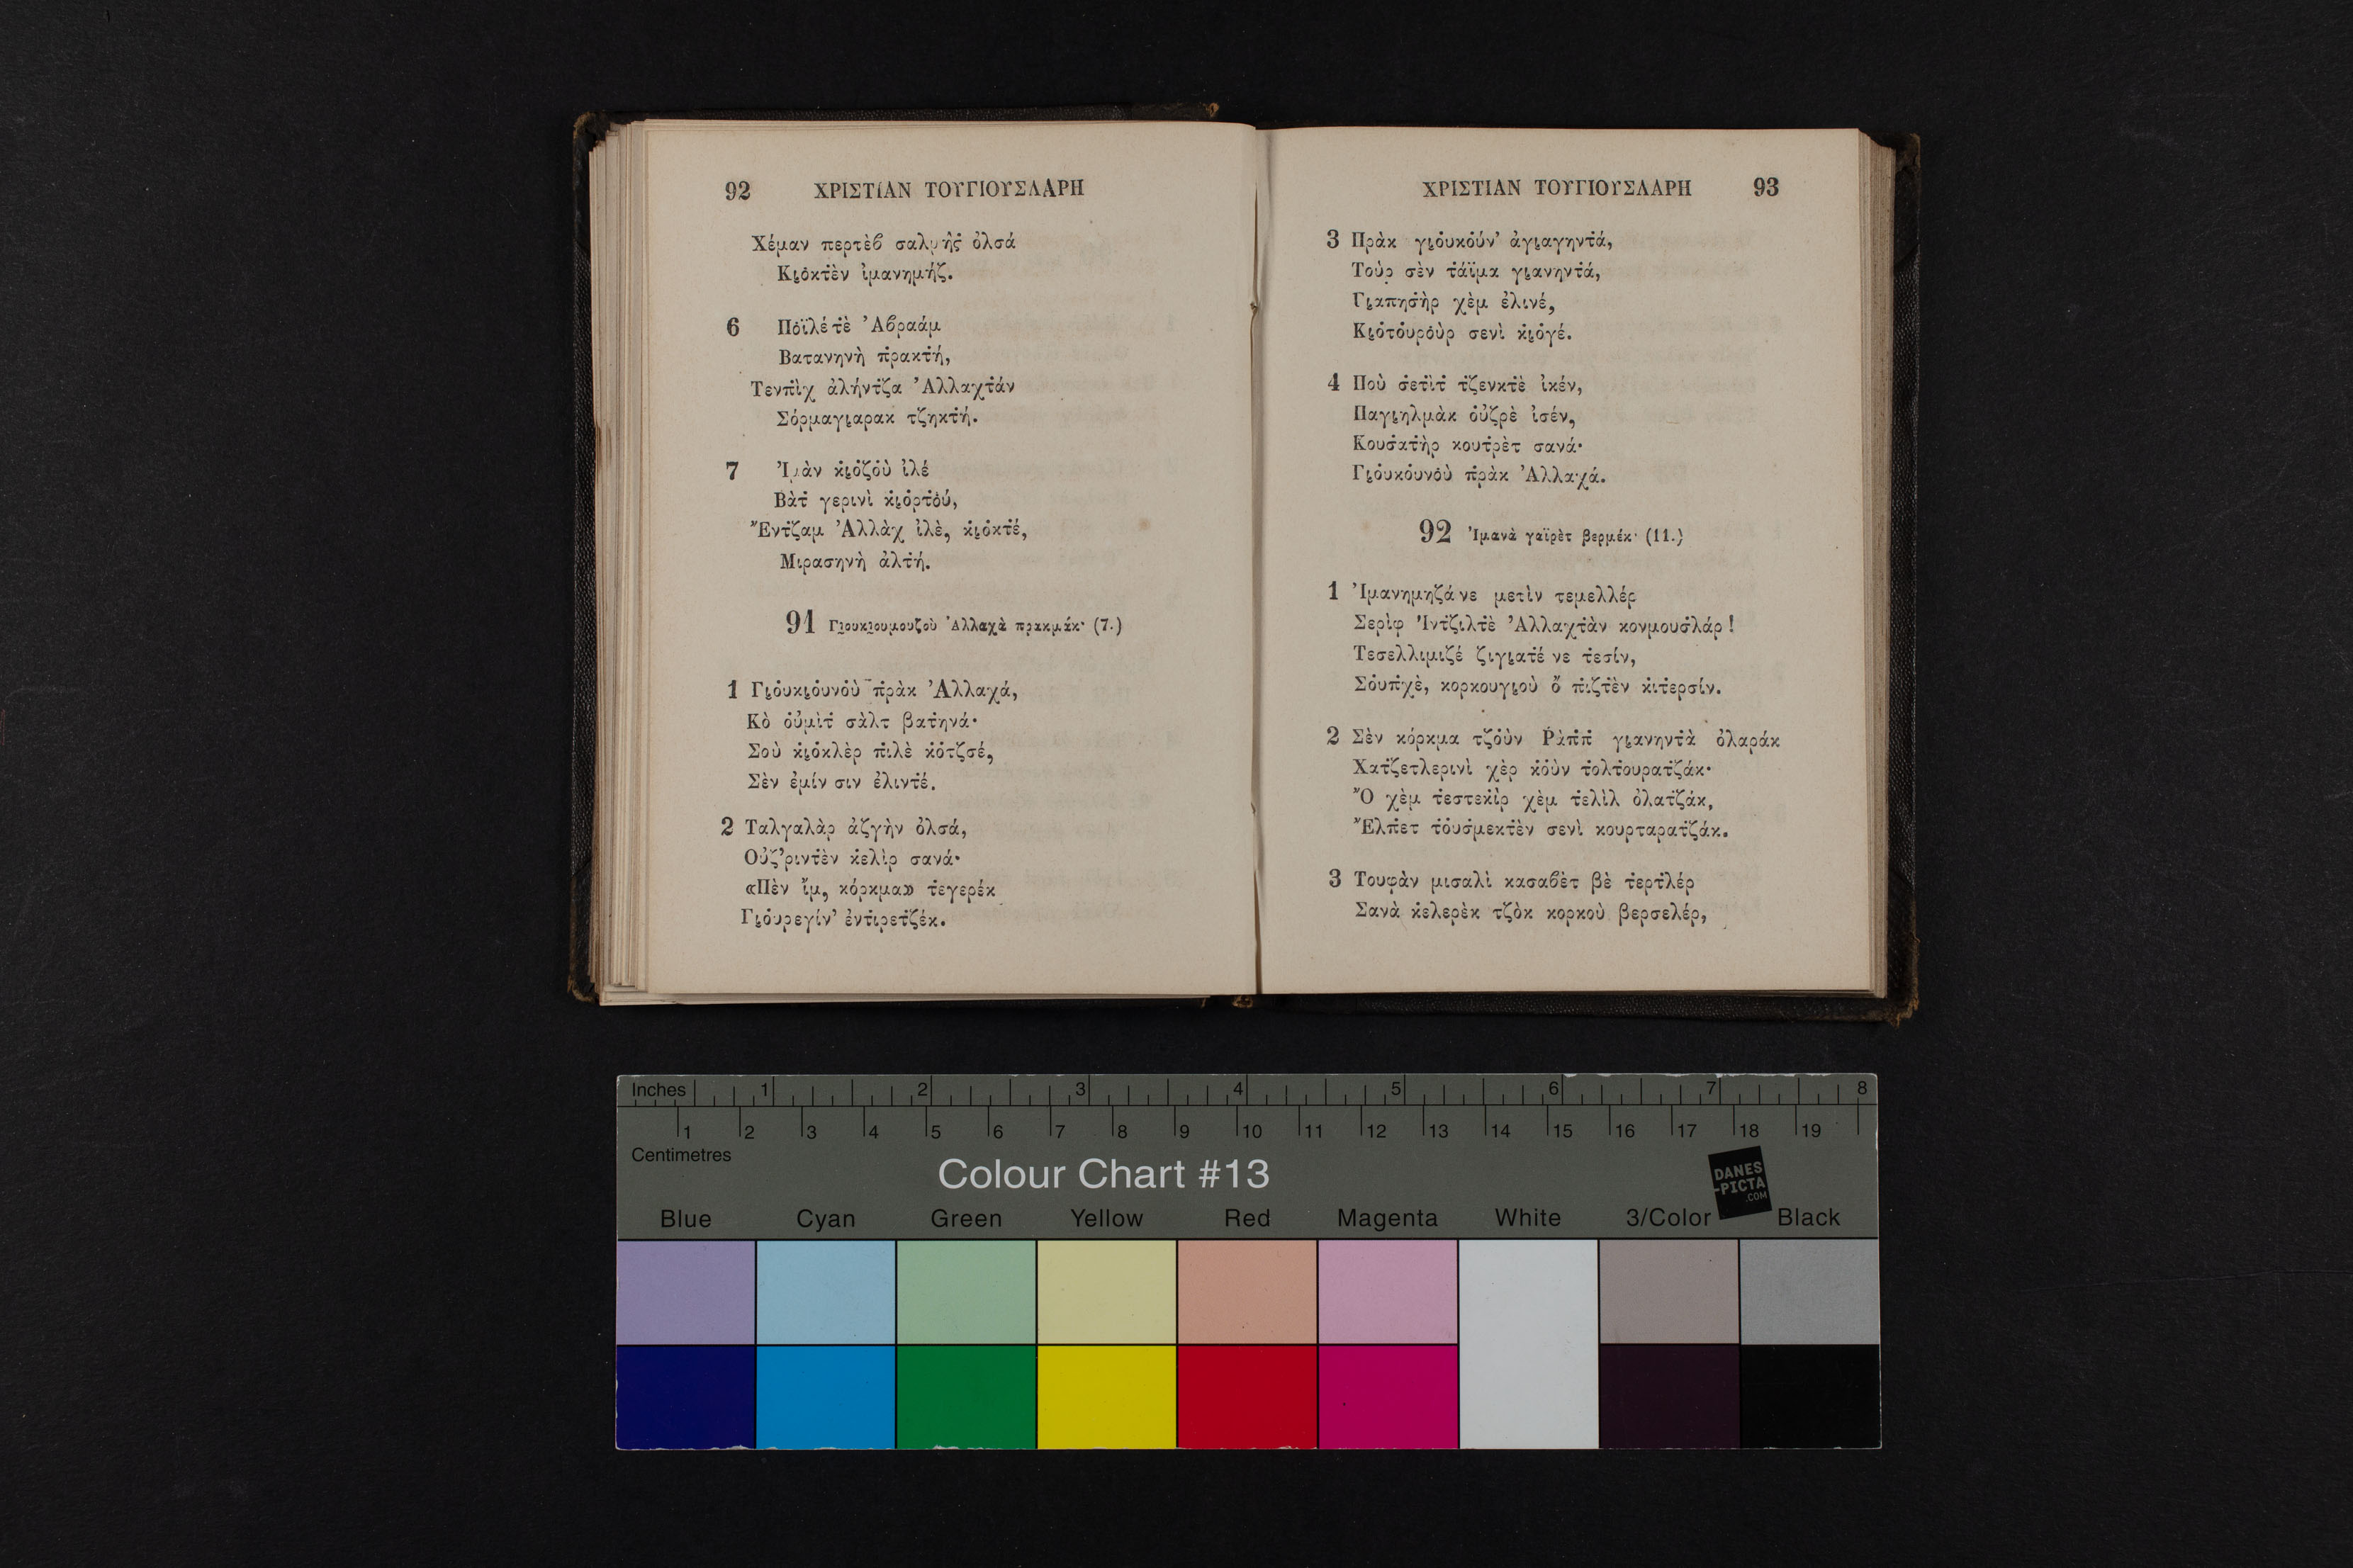 92 ΧΡΙΣΤΙΑΝ ΤΟΥΓΙΟΥΣΛΑΡΗ
Χέμαν περτὲβ σαλμὴς̇ ὀλσά
Κι̤ȯκτὲν ἰμανημήζ.
6 Πȯϊλέ τὲ Ἀβραάμ
Βατανηνὴ π̇ρακτ̇ή,
Τενπ̇ὶχ ἀλήντ̇ζα Ἀλλαχτ̇άν
Σόρμαγι̤αρακ τζηκτ̇ή.
7 Ἰμὰν κ̇ι̤ȯζοὺ ἰλέ
Βὰτ̇ γερινὶ κ̇ι̤ȯρτ̇ού,
Ἔντ̇ζαμ Ἀλλὰχ ἰλὲ, κ̇ι̤ȯκτ̇έ,
Μιρασηνὴ ἀλτ̇ή.
91 Γιουκιουμουζοὺ Ἀλλαχὰ πρακμάκ· (7.)
1 Γι̤ȯυκι̤ȯυνȯὺ π̇ρὰκ Ἀλλαχά,
Κὸ ȯὐμὶτ̇ σὰλτ βατ̇ηνά·
Σοὺ κ̇ι̤ȯκλὲρ π̇ιλὲ κ̇ȯτζσέ,
Σὲν ἐμίν σιν ἐλιντ̇έ.
2 Ταλγαλὰρ ἀζγὴν ὀλσά,
Οὐζ'ριντ̇ὲν κ̇ελὶρ σανά·
«Πὲν ἴμ, κόρκμα» τ̇εγερέκ
Γι̤ȯυρεγίν' ἐντ̇ιρετ̇ζέκ.
ΧΡΙΣΤΙΑΝ ΤΟΥΓΙΟΥΣΛΑΡΗ 93
3 Πρὰκ γι̤ȯυκȯύν' ἀγι̤αγηντ̇ά,
Τοὺρ σὲν τ̇άϊμα γι̤ανηντ̇ά,
Γι̤απησ̇ὴρ χὲμ ἐλινέ,
Κι̤ȯτȯυρȯὺρ σενὶ κ̇ι̤ȯγέ.
4 Ποὺ σ̇ετ̇ὶτ̇ τζενκτ̇ὲ ἰκέν,
Παγι̤ηλμὰκ ȯὐζρὲ ἰσέν,
Κουσ̇ατ̇ὴρ κουτ̇ρὲτ σανά·
Γι̤ȯυκȯυνȯὺ π̇ρὰκ Ἀλλαχά.
92 Ἰμανὰ γαϊρὲτ βερμέκ· (11.)
1 Ἰμανημηζά νε μετὶν τεμελλέρ
Σερὶφ Ἰντ̇ζιλτ̇ὲ Ἀλλαχτ̇ὰν κονμουσ̇λάρ!
Τεσελλιμιζέ ζιγι̤ατ̇έ νε τ̇εσίν,
Σȯυπ̇χὲ, κορκουγι̤οὺ ὄ π̇ιζτ̇ὲν κ̇ιτ̇ερσίν.
2 Σὲν κόρκμα τζȯὺν Ῥὰπ̇π̇ γι̤ανηντ̇ὰ ὀλαράκ
Χατ̇ζετλερινὶ χὲρ κ̇ȯὺν τ̇ολτ̇ουρατ̇ζάκ·
Ὄ χὲμ τ̇εστεκ̇ὶρ χὲμ τ̇ελὶλ ὀλατ̇ζάκ,
Ἔλπ̇ετ τ̇ȯυσ̇μεκτ̇ὲν σενὶ κουρταρατ̇ζάκ.
3 Τουφὰν μισαλὶ κασαβὲτ βὲ τ̇ερτ̇λέρ
Σανὰ κ̇ελερὲκ τζὸκ κορκοὺ βερσελέρ,
Inches 1 2 3 4 5 6 7 8
1 2 3 4 5 6 7 8 9 10 11 12 13 14 15 16 17 18 19
Centimetres
Colour Chart #13
DANES
-PICTA
.COM
Blue Cyan Green Yellow Red Magenta White 3/Color Black